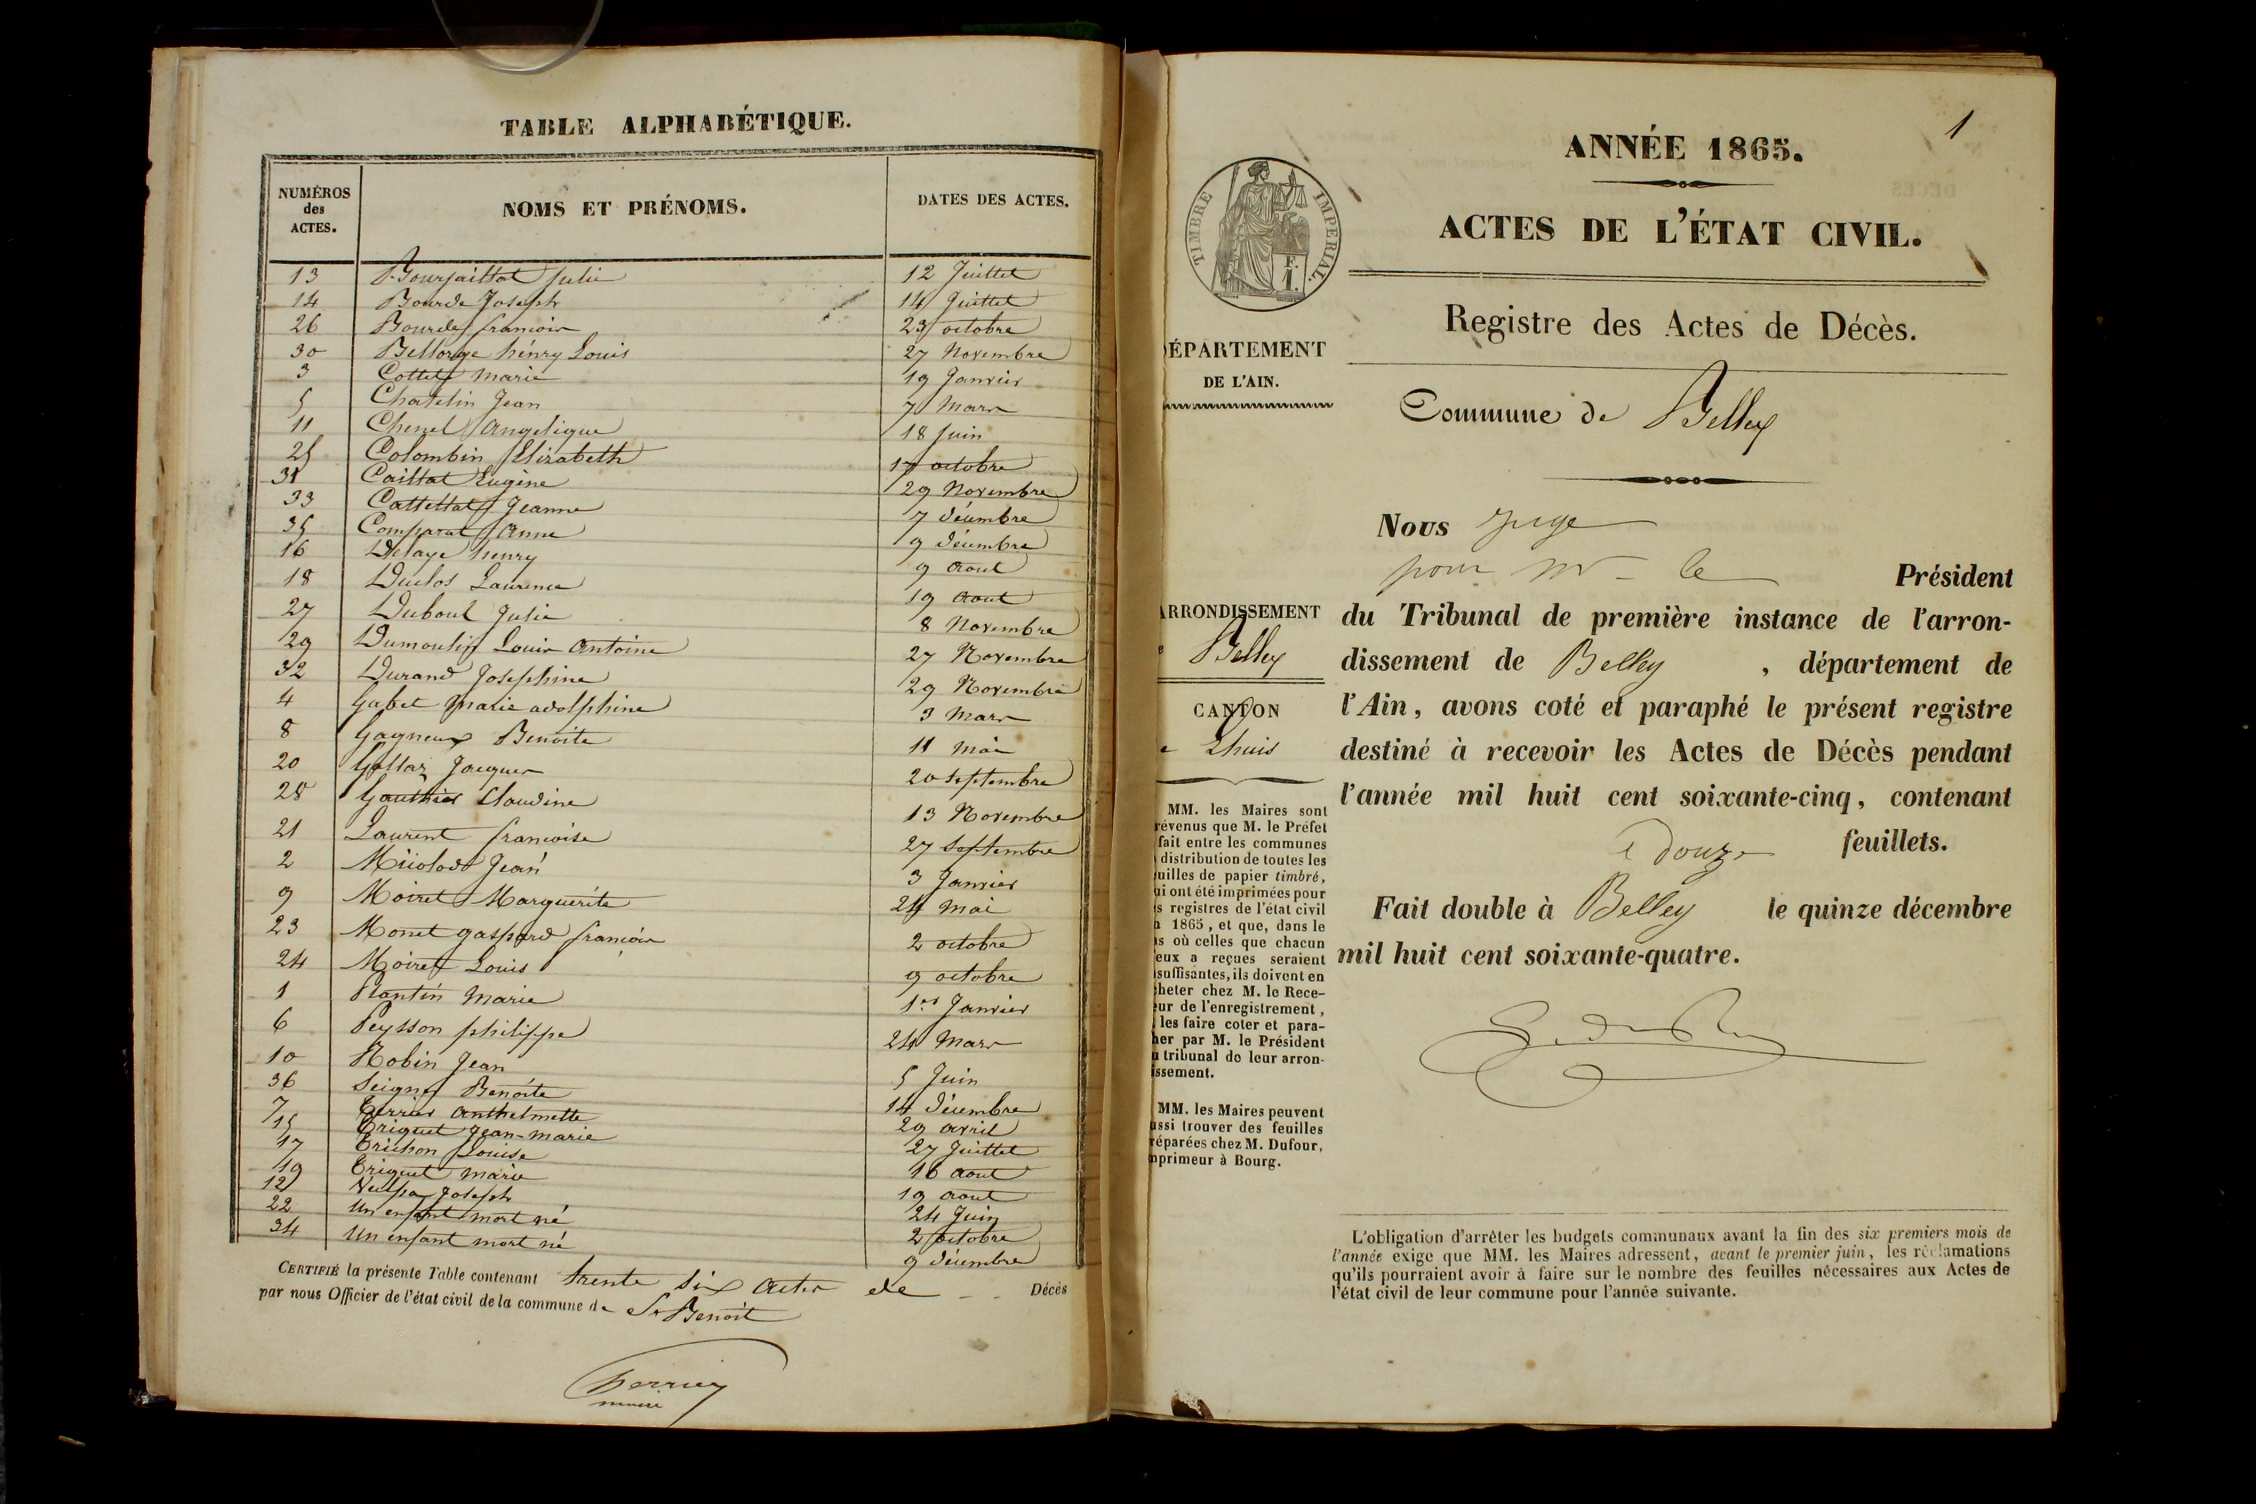 TABLE ALPHABÉTIQUE.
NUMÉROS des ACTES. NOMS ET PRÉNOMS. DATES DES ACTES.
13 Bourjaillat Julie 12 Juillet
14 Bourde Joseph 14 Juillet
26 Bourde francois 23 octobre
30 Bellorge henry Louis 27 Novembre
3 Cottet marie 19 Janvier
5 Chatelin Jean 7 Mars
11 Chenel Angelique 18 Juin
25 Colombin Elizabeth 17 octobre
31 Caillat Eugène 29 Novembre
33 Cattettat Jeanne 7 décembre
35 Comparat Anne 9 décembre
16 Delaye henry 9 Aout
18 Duclos Laurence 19 Aout
27 Dubout Julie 8 Novembre
29 Dumoulin Louis Antoine 27 Novembre
32 Durand Josephine 29 Novembre
4 Gabet Marie adolphine 3 Mars
8 Gagneux Benoite 11 Mai
20 Gallaz Jacques 20 septembre
28 Gauthier Claudine 13 Novembre
21 Laurent francoise 27 Septembre
2 Jean 3 Janvier
9 Moiret Marguerite 24 Mai
23 Monet gaspard françois 2 octobre
24 Moiret Louis 9 octobre
1 Plantin Marie 1er Janvier
6 Peysson philippe 24 Mars
10 Robin Jean 5 Juin
36 Seigne Benoite 14 décembre
7 Terrier Anthelmette 29 avril
15 Triquet Jean-marie 27 Juillet
17 Trichon Louise 16 Aout
19 Triquet Marie 19 Aout
12 Joseph 24 Juin
22 Un enfant mort né 2 octobre
34 Un enfant mort né 9 décembre
CERTIFIÉ la présente Table contenant trente six Actes de Décès
par nous Officier de l'état civil de la commune de St Benoit
maire
1
ANNÉE 1865.
ACTES DE L'ÉTAT CIVIL.
TIMBRE IMPERIAL.
F.
1.
Registre des Actes de Décès.
DÉPARTEMENT
DE L'AIN.
Commune de Belley
Nous juge
pour Mr le Président
du Tribunal de première instance de l'arron-
dissement de Belley, département de
l'Ain, avons coté et paraphé le présent registre
destiné à recevoir les Actes de Décès pendant
l'année mil huit cent soixante-cinq, contenant
douze feuillets.
Fait double à Belley le quinze décembre
mil huit cent soixante-quatre.
ARRONDISSEMENT
Belley
CANTON
Lhuis
MM. les Maires sont
révenus que M. le Préfet
fait entre les communes
distribution de toutes les
uilles de papier timbré,
ui ont été imprimées pour
s registres de l'état civil
1865, et que, dans le
s où celles que chacun
eux a reçues seraient
suffisantes, ils doivent en
heter chez M. le Rece-
eur de l'enregistrement,
les faire coter et para-
her par M. le Président
u tribunal de leur arron-
issement.
MM. les Maires peuvent
ussi trouver des feuilles
réparées chez M. Dufour,
mprimeur à Bourg.
L'obligation d'arrêter les budgets communaux avant la fin des six premiers mois de
l'année exige que MM. les Maires adressent, avant le premier juin, les réclamations
qu'ils pourraient avoir à faire sur le nombre des feuilles nécessaires aux Actes de
l'état civil de leur commune pour l'année suivante.